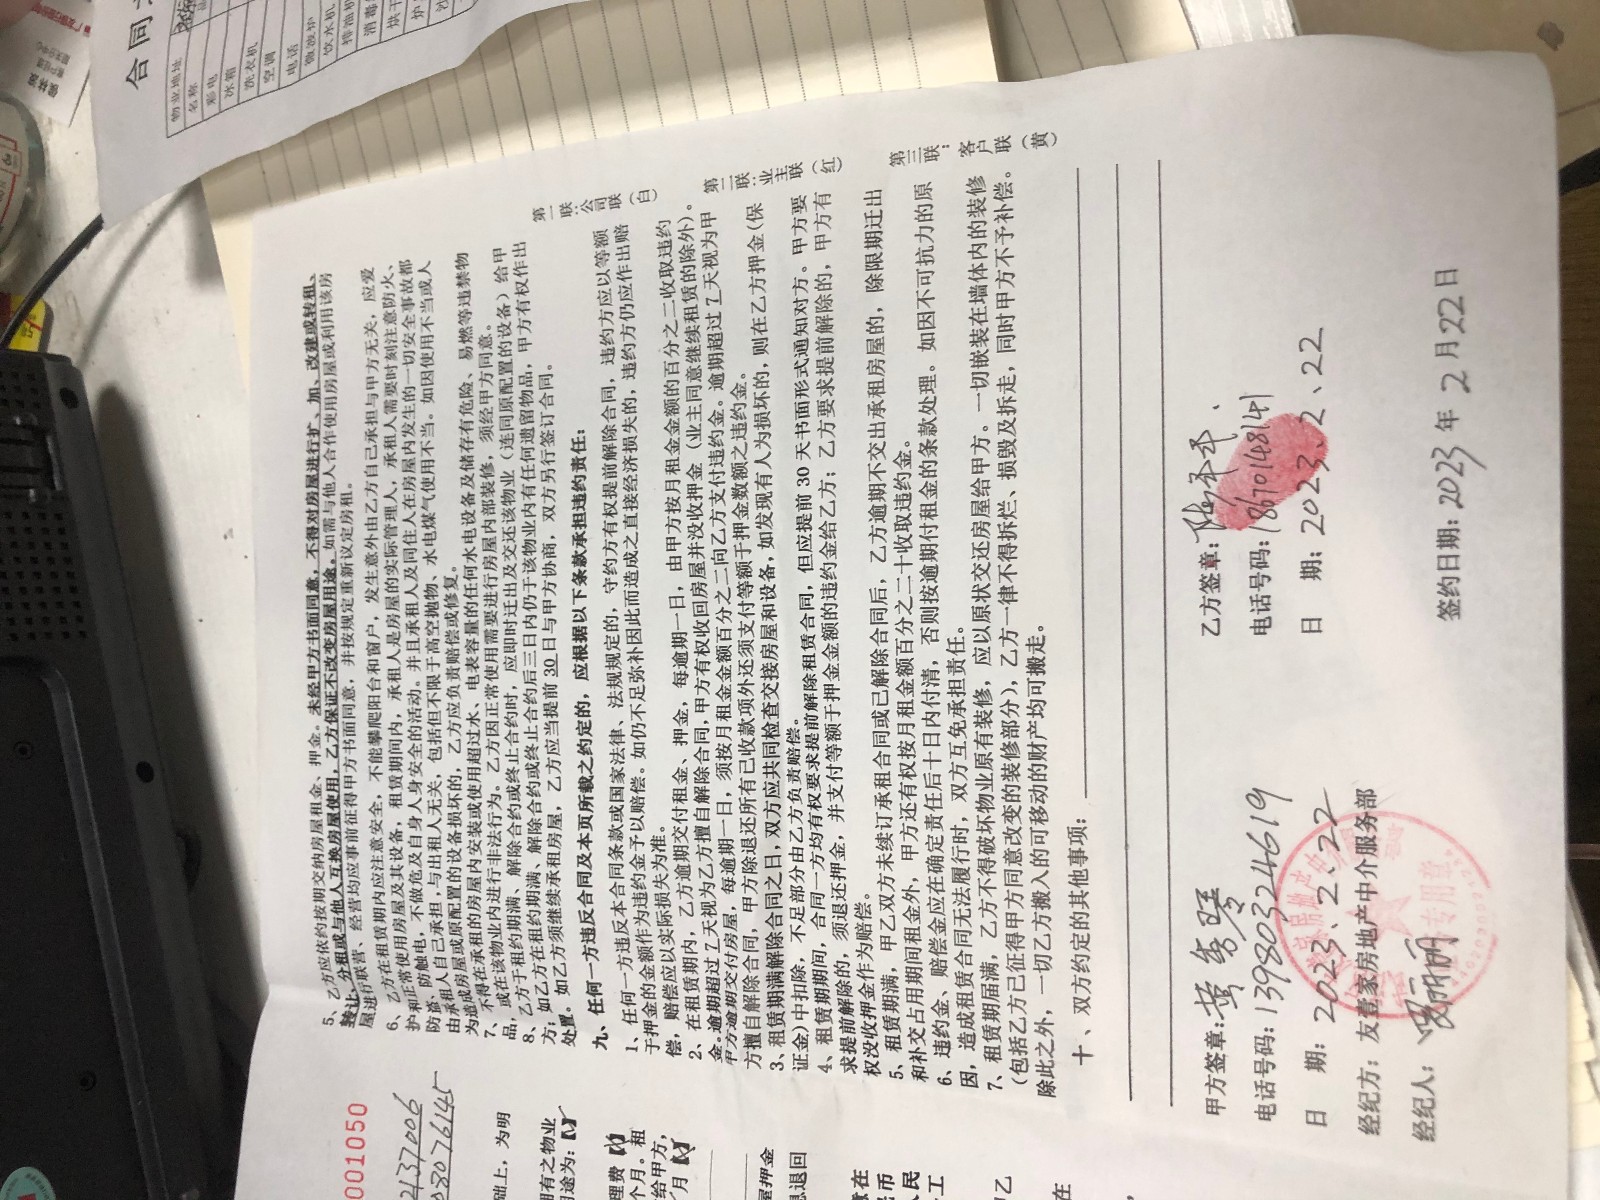 5、乙方应依约按期交纳房屋租金、押金。未经甲方书面同意，不得对房屋进行扩、加、改建或转租、
转让、分租或与他人互换房屋使用，乙方保证不改变房屋用途。如需与他人合作使用房屋或利用该房
屋进行联营、经营均应事前征得甲方书面同意，并按规定重新议定房租。
6、乙方在租赁期内应注意安全，不能攀爬阳台和窗户，发生意外由乙方自己承担与甲方无关，应爱
护和正常使用房屋及其设备，租赁期间内，承租人是房屋的实际管理人，承租人需要时刻注意防火、
防盗、防触电，不做危及自身人身安全的活动。并且承租人及同住人在房屋内发生的一切安全事故都
由承租人自己承担，与出租人无关，包括但不限于高空抛物、水电煤气使用不当。如因使用不当或人
为造成房屋或原配置的设备损坏的，乙方应负责赔偿或修复。
7、不得在承租的房屋内安装或使用超过水、电表容量的任何水电设备及储存有危险、易燃等违禁物
品，或在该物业内进行非法行为。乙方因正常使用需要进行房屋内部装修，须经甲方同意。
8、乙方于租约期满、解除合约或终止合约时，应即时迁出及交还该物业（连同原配置的设备）给甲
方；如乙方在租约期满、解除合约或终止合约后三日内仍于该物业内有任何遗留物品，甲方有权作出
处置。如乙方须继续承租房屋，乙方应当提前30日与甲方协商，双方另行签订合同。
九、任何一方违反合同及本页所载之约定的，应根据以下条款承担违约责任：
1、任何一方违反本合同条款或国家法律、法规规定的，守约方有权提前解除合同，违约方应以等额
于押金的金额作为违约金予以赔偿。如仍不足弥补因此而造成之直接经济损失的，违约方仍应作出赔
偿，赔偿应以实际损失为准。
2、在租赁期内，乙方逾期交付租金、押金，每逾期一日，由甲方按月租金金额的百分之二收取违约
金。逾期超过7天视为乙方擅自解除合同，甲方有权收回房屋并没收押金（业主同意继续租赁的除外）。
甲方逾期交付房屋，每逾期一日，须按月租金金额百分之二向乙方支付违约金。逾期超过7天视为甲
方擅自解除合同，甲方除退还所有已收款项外还须支付等额于押金数额之违约金。
3、租赁期满解除合同之日，双方应共同检查交接房屋和设备，如发现有人为损坏的，则在乙方押金（保
证金）中扣除，不足部分由乙方负责赔偿。
4、租赁期期间，合同一方均有权要求提前解除租赁合同，但应提前30天书面形式通知对方。甲方要
求提前解除的，须退还押金，并支付等额于押金金额的违约金给乙方；乙方要求提前解除的，甲方有
权没收押金作为赔偿。
5、租赁期满，甲乙双方未续订承租合同或已解除合同后，乙方逾期不交出承租房屋的，除限期迁出
和补交占用期间租金外，甲方还有权按月租金额百分之二十收取违约金。
6、违约金、赔偿金应在确定责任后十日内付清，否则按逾期付租金的条款处理。如因不可抗力的原
因，造成租赁合同无法履行时，双方互免承担责任。
7、租赁期届满，乙方不得破坏物业原有装修，应以原状交还房屋给甲方。一切嵌装在墙体内的装修
（包括乙方已征得甲方同意改变的装修部分），乙方一律不得拆烂、损毁及拆走，同时甲方不予补偿。
除此之外，一切乙方搬入的可移动的财产均可搬走。
十、双方约定的其他事项：
甲方签章：
电话号码：13980324619
日 期：2023.2.22
经纪方：友壹家房地产中介服务部
经纪人：
乙方签章：
电话号码：18670148141
日 期：2023.2.22
签约日期：2023年2月22日
第一联：公司联（白）
第二联：业主联（红）
第三联：客户联（黄）
001050
础上，为明
拥有之物业
用途为：【
理费【
个月。租
给甲方，
屋押金
息退回
合同
物业地址
名称
彩电
冰箱
洗衣机
空调
电话
微波炉
饮水机